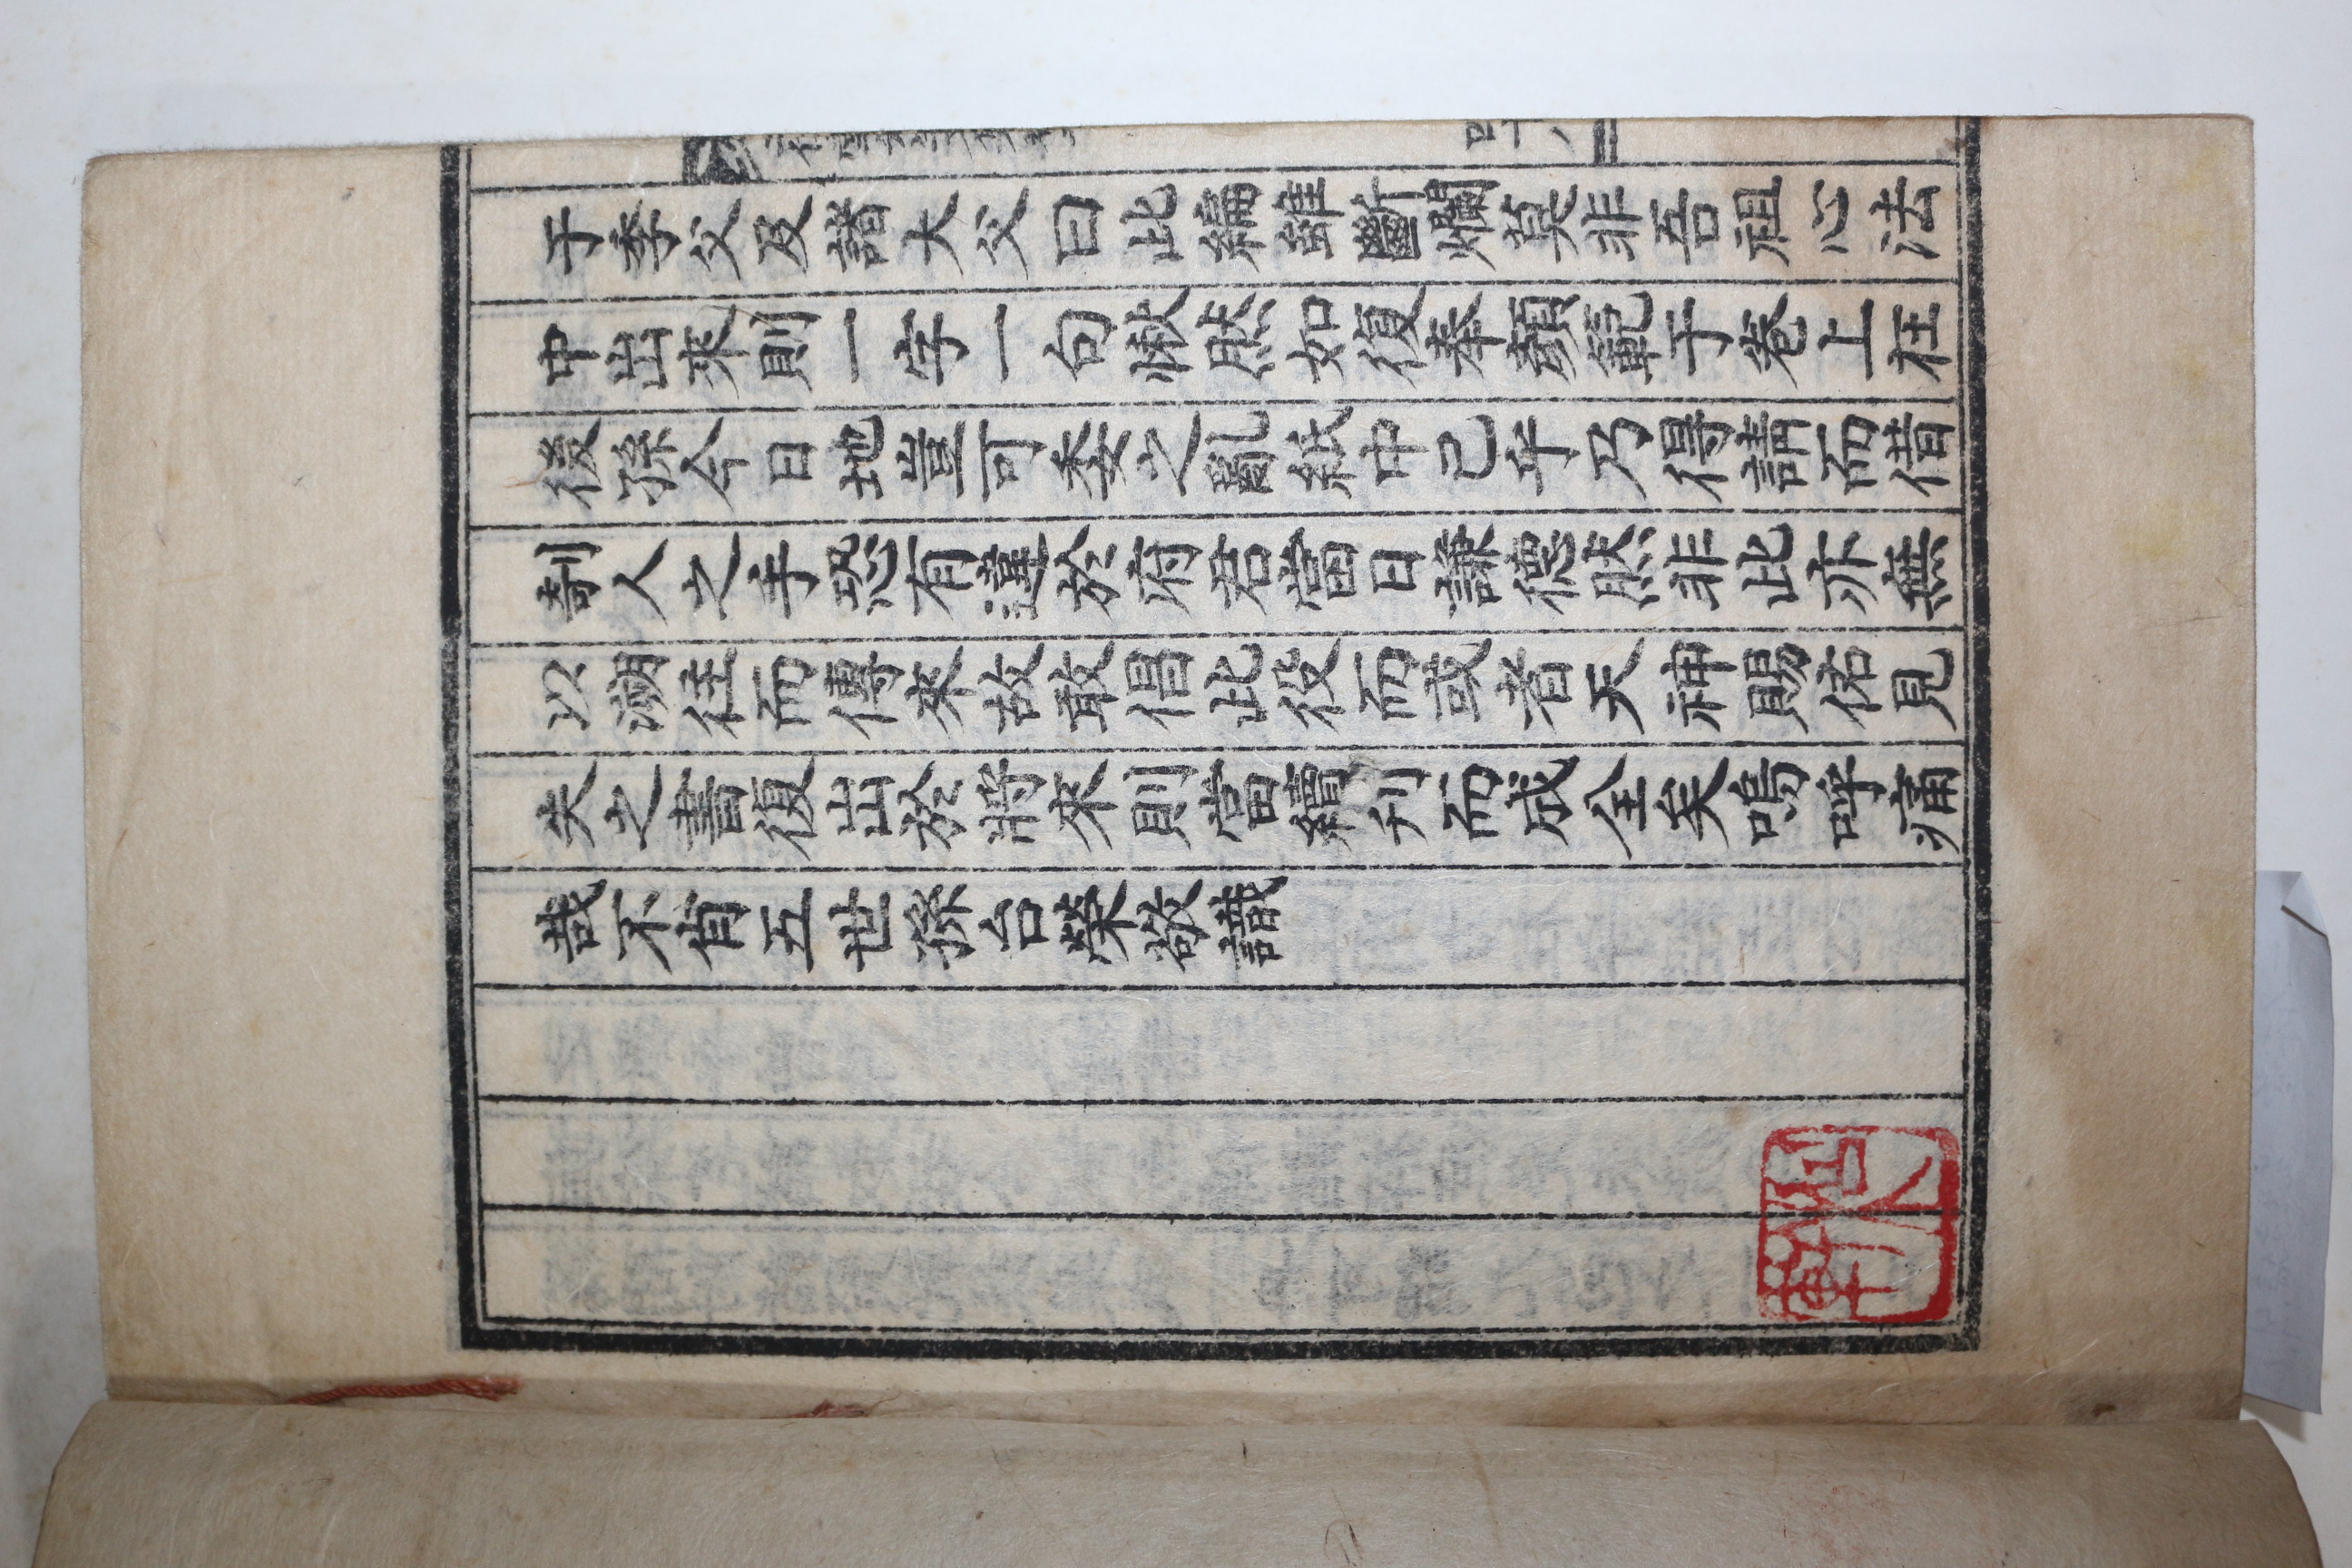 于季父及諸大父曰此編雖斷爛莫非吾祖心法
中出來則一字一句愀然如復奉顏範于卷上在
後孫今日地豈可委之亂紙中已乎乃得請而借
剞人之手恐有違於府君當日謙德然非此亦無
以溯往而傳來故敢倡此役而或者天神賜佑見
失之書復出於將來則當續刊而成全矣嗚呼痛
哉不肖五世孫台榮敬識